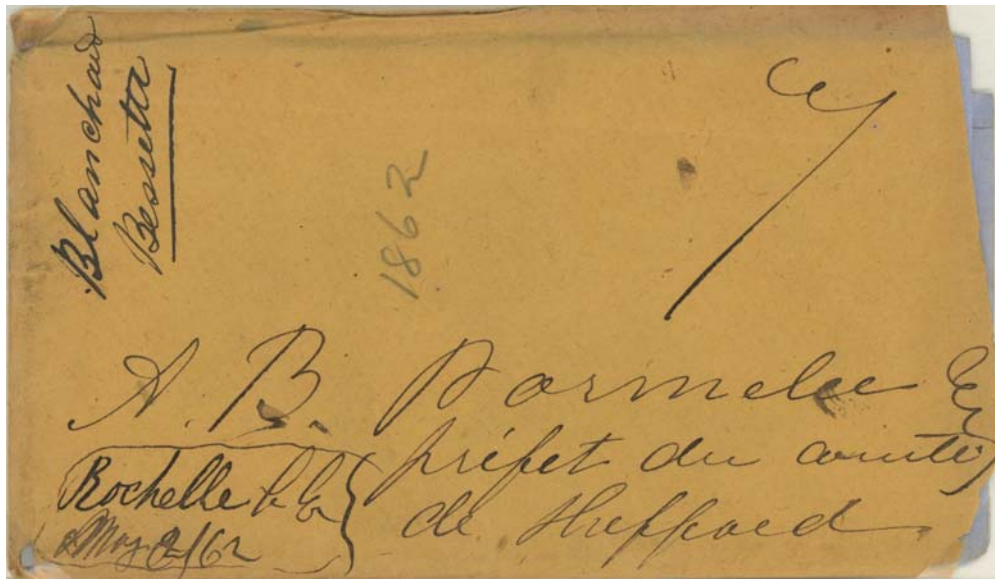 Blanchard
Bessette
1862
A. B. Parmelee
préfet du comté
de Shefford
Rochelle
May 2/62